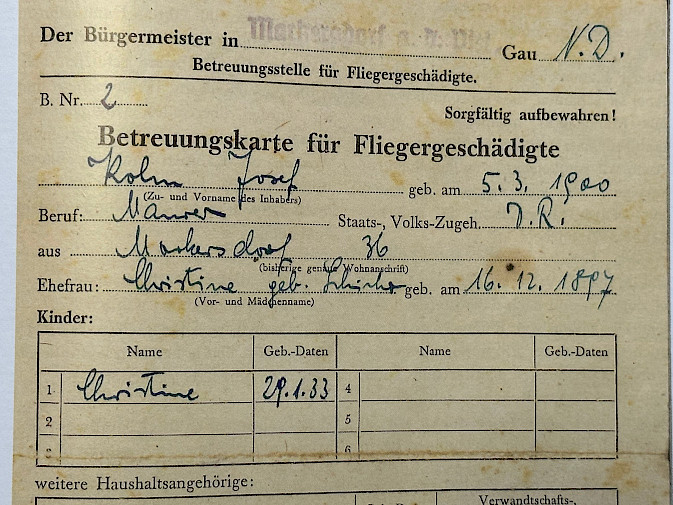 Der Bürgermeister in Markersdorf a. d. Gau N.D.
Betreuungsstelle für Fliegergeschädigte.
B. Nr. 2
Sorgfältig aufbewahren!
Betreuungskarte für Fliegergeschädigte
Kolm Josef geb. am 5. 3. 1900
(Zu- und Vorname des Inhabers)
Beruf: Maurer Staats-, Volks-Zugeh. D.R.
aus Markersdorf 36
(bisherige genaue Wohnanschrift)
Ehefrau: Christine geb. geb. am 16. 12. 1897
(Vor- und Mädchenname)
Kinder:
Name Geb.-Daten Name Geb.-Daten
1 Christine 29.1.33 4
2 5
3 6
weitere Haushaltsangehörige:
Verwandtschafts-,